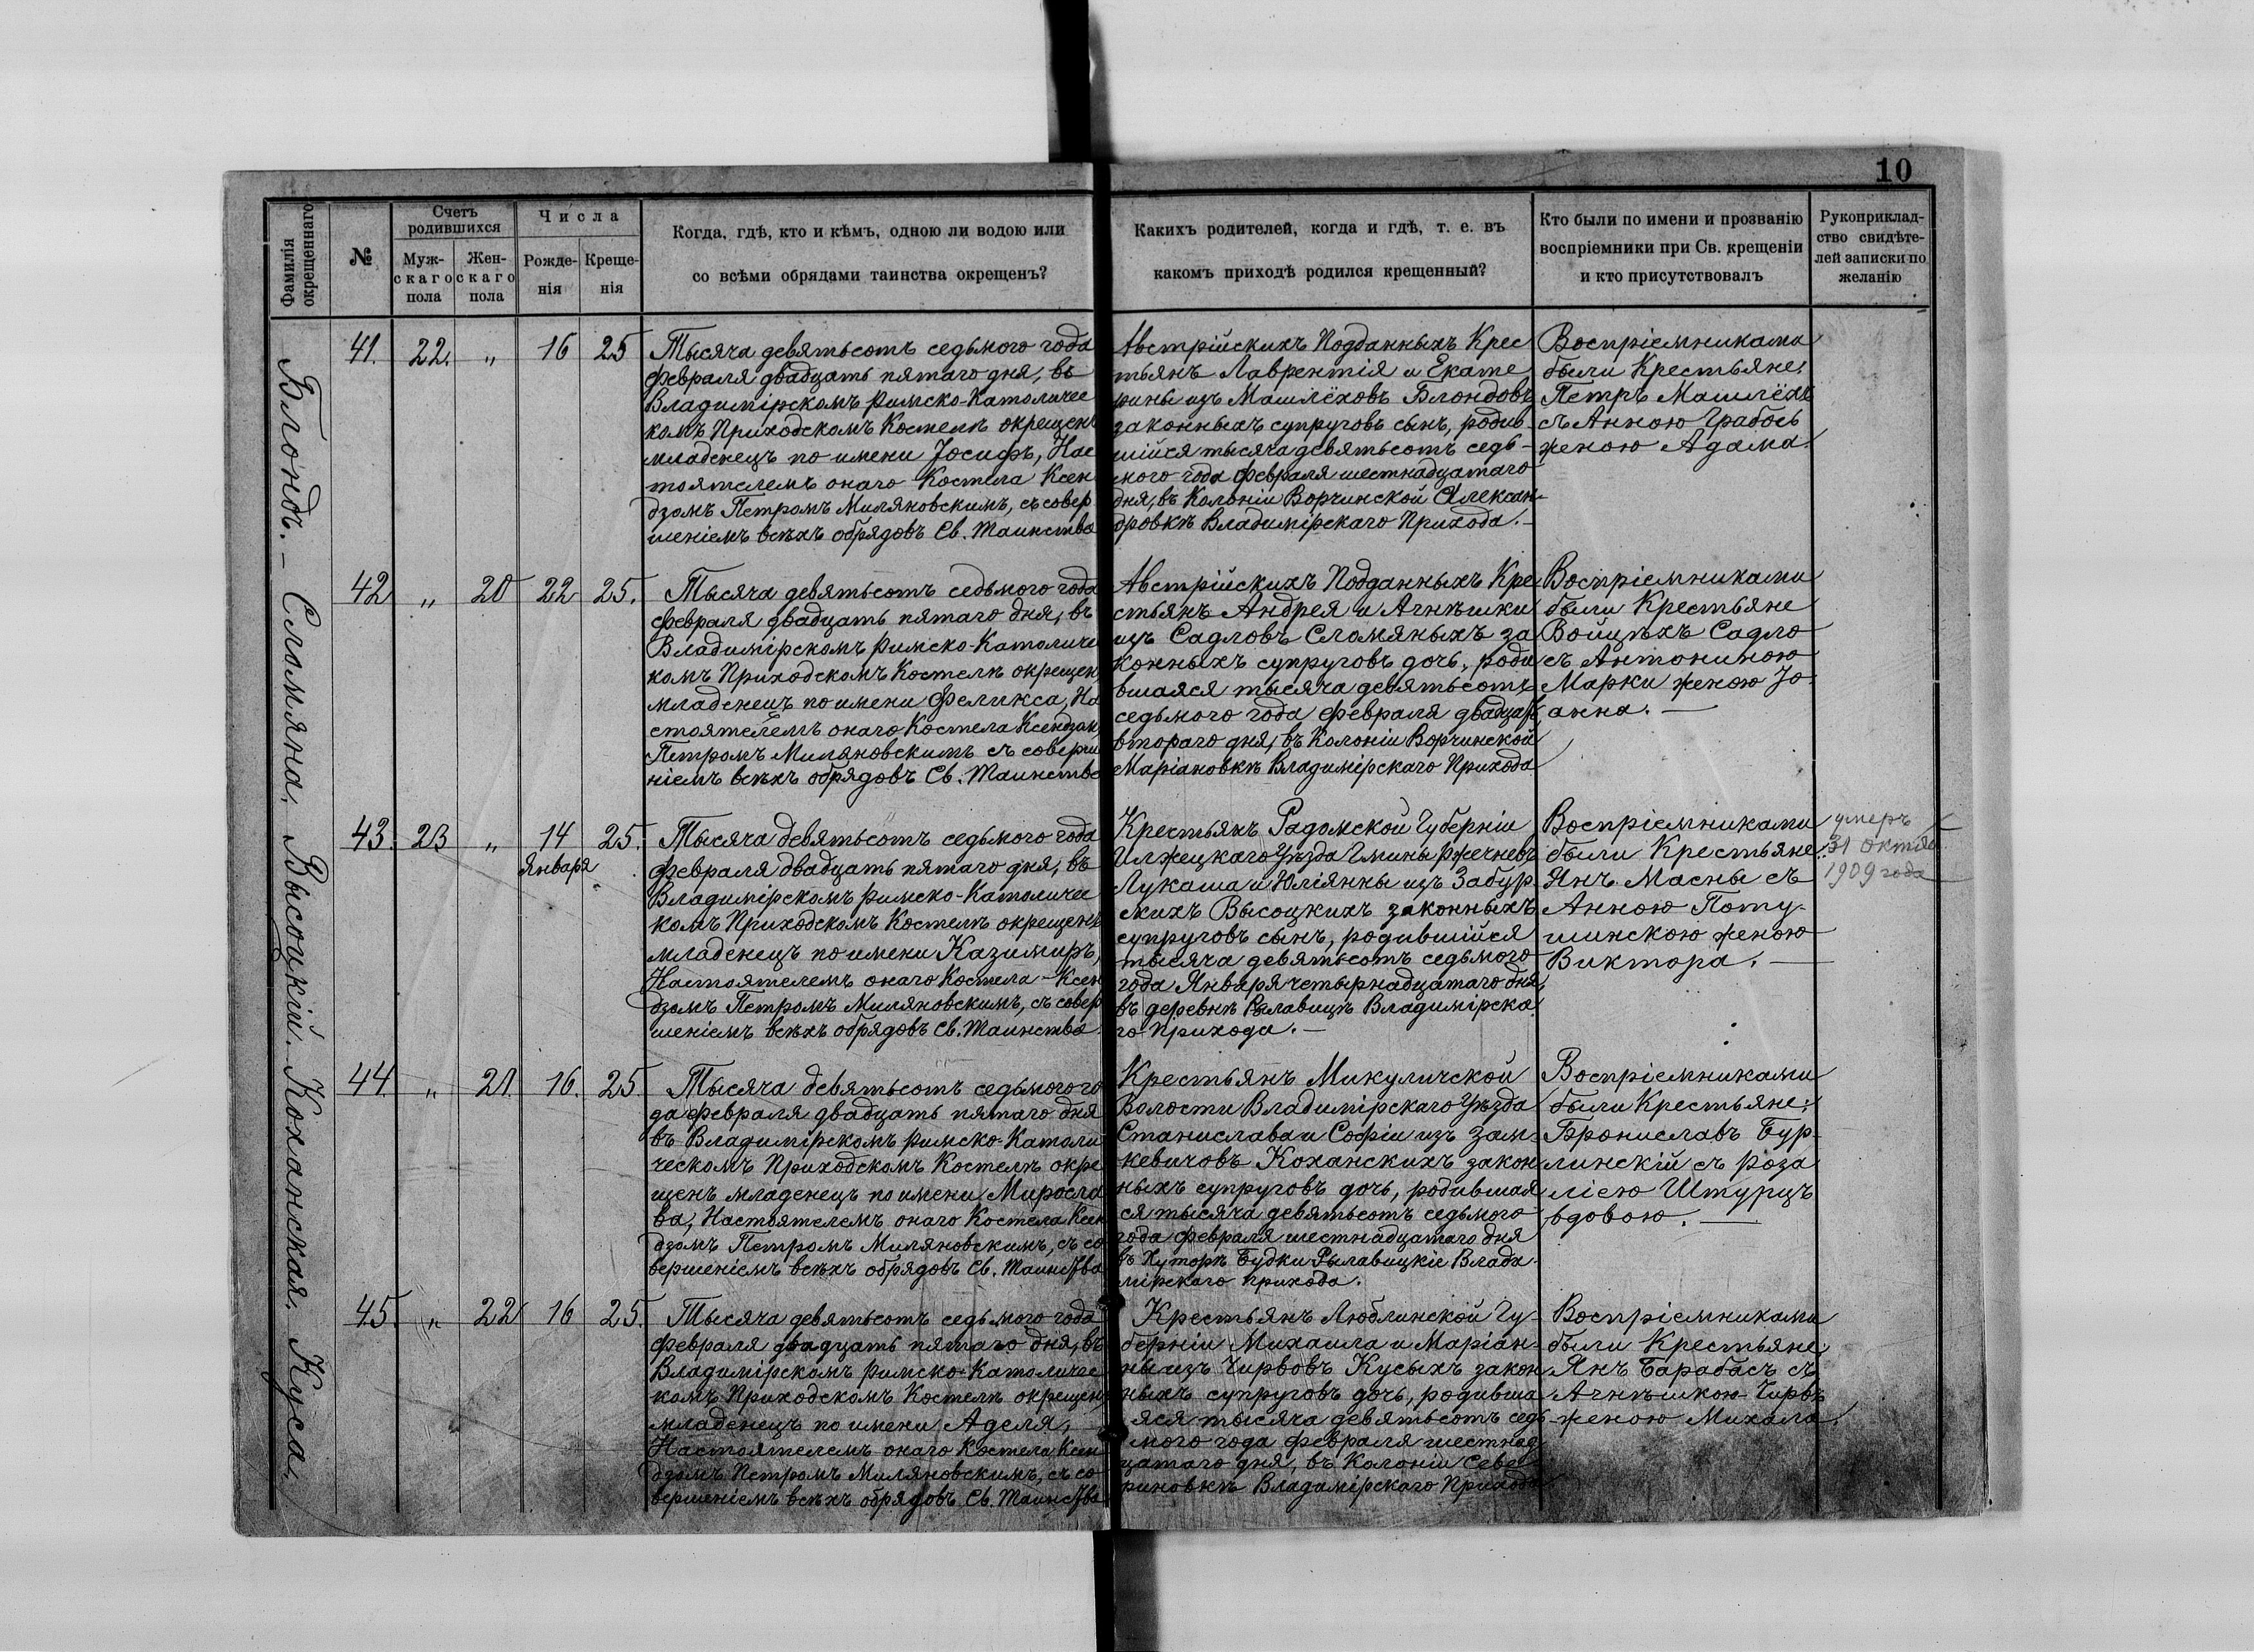 10
Фамилія
окрещеннаго
№
Счетъ
родившихся
Муж-
скаго
пола
Жен-
скаго
пола
Числа
Рожде-
нія
Креще-
нія
Когда, гдѣ, кто и кѣмъ, одною ли водою или
со всѣми обрядами таинства окрещенъ?
Какихъ родителей, когда и гдѣ, т. е. въ
какомъ приходѣ родился крещенный?
Кто были по имени и прозванію
воспріемники при Св. крещеніи
и кто присутствовалъ
Руконриклад-
ство свидѣте-
лей записки по
желанію
Блондъ. – Сломяна. Высоцкій. Коханская. Куса.
41. 22. „ 16 25
Тысяча девятьсотъ седьмого года
февраля двадцать пятаго дня, въ
Владимірскомъ Римско-Католичес
комъ Приходскомъ Костелѣ окрещенъ
младенецъ по имени Іосифъ, Нас
тоятелемъ онаго Костела Ксен
дзомъ Петромъ Миляновскимъ, съ совер
шеніемъ всѣхъ обрядовъ Св. Таинства
Австрійскихъ Подданныхъ Крес
тьянъ Лаврентія и Екате
рины изъ Машлёховъ Блондовъ
законныхъ супруговъ сынъ, родив-
шійся тысяча девятьсотъ седь-
мого года февраля шестнадцатаго
дня, въ Колоніи Ворчинской Алексан-
дровкѣ Владимірскаго Прихода.–
Воспріемниками
были Крестьяне:
Петръ Машлёхъ
съ Анною Грабось
женою Адама.
42 „ 20 22 25.
Тысяча девятьсотъ седьмого года
февраля двадцать пятаго дня, въ
Владимірскомъ Римско-Католиче
комъ Приходскомъ Костелѣ окрещен
младенецъ по имени Феликса, На
стоятелемъ онаго Костела Ксендзом
Петромъ Миляновскимъ съ соверше
ніемъ всѣхъ обрядовъ Св. Таинства
Австрійскихъ Подданныхъ Кре
стьянъ Андрея и Агнѣшки
изъ Садловъ Сломяныхъ за
конныхъ супруговъ дочь, роди
вшаяся тысяча девятьсотъ
седьмого года февраля двадцать
втораго дня, въ Колоніи Ворчинской
Маріановкѣ Владимірскаго Прихода
Воспріемниками
были Крестьяне
Войцѣхъ Садло
съ Антониною
Марки женою Іо-
анна. –
43. 23 „ 14 25.
Января
Тысяча девятьсотъ седьмого года
февраля двадцать пятаго дня, въ
Владимірскомъ Римско-Католичес
комъ Приходскомъ Костелѣ окрещенъ
младенецъ по имени Казимиръ,
Настоятелемъ онаго Костела – Ксен
дзомъ Петромъ Миляновскимъ, съ совер
шеніемъ всѣхъ обрядовъ Св. Таинства
Крестьянъ Радомской Губерніи
Илжецкаго Уѣзда Гмины Ржечневъ
Лукаша и Юліянны изъ Забур
скихъ Высоцкихъ законныхъ
супруговъ сынъ, родившійся
тысяча девятьсотъ седьмого
года Января четырнадцатаго дня,
въ деревнѣ Рылавицѣ Владимірска
го Прихода. –
Воспріемниками
были Крестьяне
Янъ Масны съ
Анною Поту-
шинскою женою
Виктора. –
умеръ
31 Октяб.
1909 года
44. „ 21. 16. 25.
Тысяча девятьсотъ седьмого го
да февраля двадцать пятаго дня
въ Владимірскомъ Римско-Католи
ческомъ Приходскомъ Костелѣ окре
щенъ младенецъ по имени Миросла
ва, Настоятелемъ онаго Костела Ксен
дзомъ Петромъ Миляновскимъ, съ со
вершеніемъ всѣхъ обрядовъ Св. Таинства
Крестьянъ Микуличской
Волости Владимірскаго Уѣзда
Станислава и Софіи изъ Зам-
кевичовъ Коханскихъ закон
ныхъ супруговъ дочь, родившая
ся тысяча девятьсотъ седьмого
года февраля шестнадцатаго дня
въ Хуторѣ Будки Рылавицкіе Влади-
мірскаго прихода.
Воспріемниками
были Крестьяне:
Брониславъ Бур-
линскій съ Роза
ліею Штурцъ
вдовою. –
45. „ 22 16 25.
Тысяча девятьсотъ седьмого года
февраля двадцать пятаго дня, въ
Владимірскомъ Римско-Католичес
комъ Приходскомъ Костелѣ окрещен
младенецъ по имени Аделя,
Настоятелемъ онаго Костела Ксен
дзомъ Петромъ Миляновскимъ, съ со
вершеніемъ всѣхъ обрядовъ Св. Таинства
Крестьянъ Люблинской Гу-
берніи Михаила и Маріан-
ны изъ Чирвовъ Кусыхъ закон
ныхъ супруговъ дочь, родивша
яся тысяча девятьсотъ седь-
мого года февраля шестнад
цатаго дня, въ Колоніи Севе-
риновкѣ Владимірскаго Прихода
Воспріемниками
были Крестьяне
Янъ Барабасъ съ
Агнѣшкою Чирвъ
женою Михала.